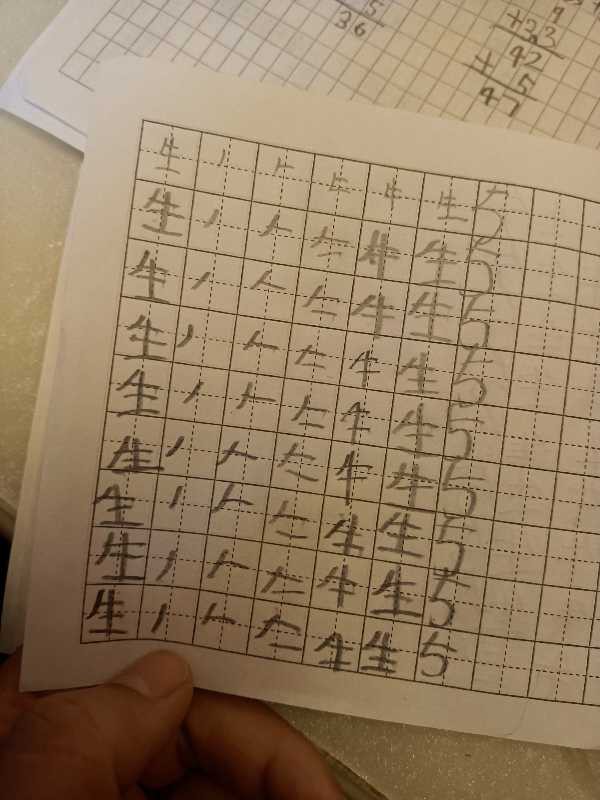 5
36
9
+33
42
+ 5
47
生 丿 𠂉 生 5
生 丿 𠂉 牛 生 5
生 丿 𠂉 牛 生 5
生 丿 𠂉 牛 生 5
生 丿 𠂉 牛 生 5
生 丿 𠂉 牛 生 5
生 丿 𠂉 生 生 5
生 丿 𠂉 牛 生 5
生 丿 𠂉 生 生 5